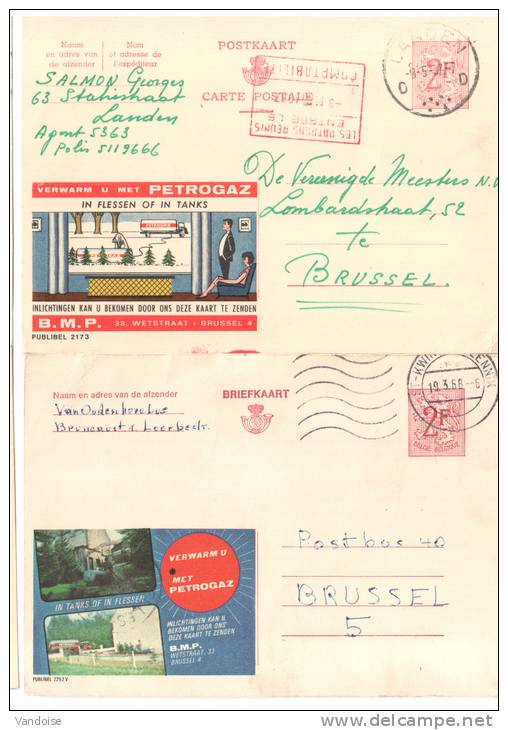 Naam en adres van de afzender
Nom et adresse de l'expéditeur
POSTKAART
CARTE POSTALE
LANDEN
D D
2F
SALMON Georges
63 Statiestraat
Landen
Agent 5363
Polis 5119666
LES PATRONS REUNIS
ENTREE LE
COMPTABILITE
De Verenigde Meesters N.V.
Lombardstraat, 52
te
BRUSSEL.
VERWARM U MET PETROGAZ
IN FLESSEN OF IN TANKS
PETROGAZ
INLICHTINGEN KAN U BEKOMEN DOOR ONS DEZE KAART TE ZENDEN
B.M.P. 33, WETSTRAAT - BRUSSEL 4
PUBLIBEL 2173
Naam en adres van de afzender
BRIEFKAART
19.3.68
2F
BELGIE-BELGIQUE
Postbus 40
BRUSSEL
5
VERWARM U
MET
PETROGAZ
IN TANKS OF IN FLESSEN
INLICHTINGEN KAN U
BEKOMEN DOOR ONS
DEZE KAART TE ZENDEN
B.M.P.
WETSTRAAT, 33
BRUSSEL 4
PUBLIBEL 2252 V
Vandoise
delcampe.net